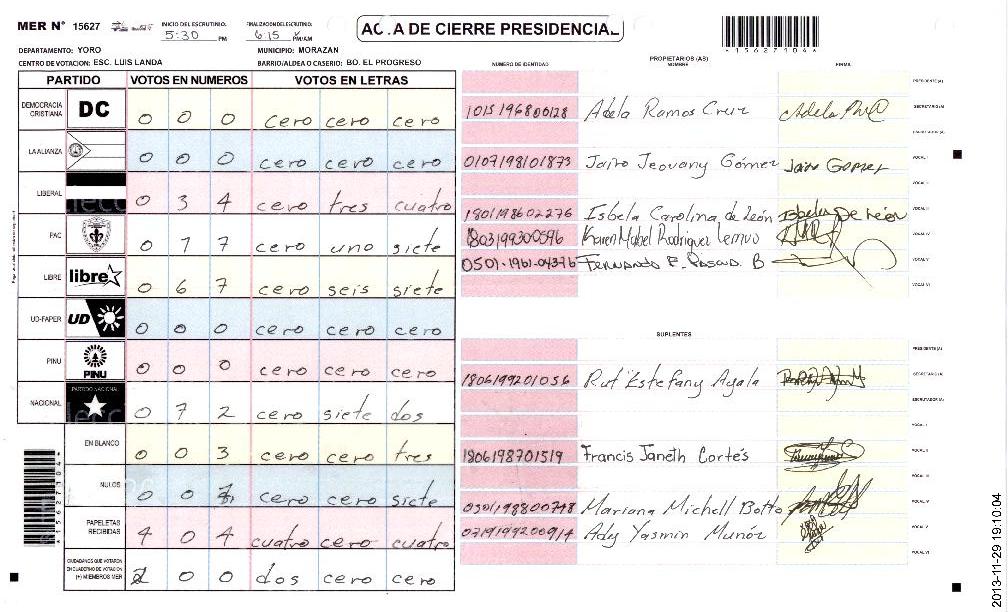 MER N° 15627
INICIO DEL ESCRUTINIO:
5:30 PM
FINALIZACION DEL ESCRUTINIO:
6:15 PM/AM
ACTA DE CIERRE PRESIDENCIAL
*15627104*
DEPARTAMENTO: YORO
MUNICIPIO: MORAZAN
CENTRO DE VOTACION: ESC. LUIS LANDA
BARRIO/ALDEA O CASERIO: BO. EL PROGRESO
PARTIDO VOTOS EN NUMEROS VOTOS EN LETRAS
DEMOCRACIA CRISTIANA DC 0 0 0 cero cero cero
LA ALIANZA 0 0 0 cero cero cero
LIBERAL 0 3 4 cero tres cuatro
PAC 0 1 7 cero uno siete
LIBRE libre 0 6 7 cero seis siete
UD-FAPER UD 0 0 0 cero cero cero
PINU PINU 0 0 0 cero cero cero
NACIONAL PARTIDO NACIONAL 0 7 2 cero siete dos
EN BLANCO 0 0 3 cero cero tres
NULOS 0 0 7 cero cero siete
PAPELETAS RECIBIDAS 4 0 4 cuatro cero cuatro
CIUDADANOS QUE VOTARON EN CUADERNO DE VOTACION (+) MIEMBROS MER 2 0 0 dos cero cero
NUMERO DE IDENTIDAD PROPIETARIOS (AS) NOMBRE FIRMA
PRESIDENTE (A)
1015196800128 Adela Ramos Cruz SECRETARIO (A)
ESCRUTADOR (A)
0107198101873 Jairo Jeovany Gómez Jairo Gomez VOCAL I
VOCAL II
1801198602276 Isbela Carolina de León VOCAL III
1803199300596 Karen Mabel Rodriguez VOCAL IV
0501-1961-04376 Fernando P. B VOCAL V
VOCAL VI
SUPLENTES
PRESIDENTE (A)
1806199201056 Rut Estefany Ayala SECRETARIO (A)
ESCRUTADOR (A)
VOCAL I
1806198701519 Francis Janeth Cortés VOCAL II
VOCAL III
0501198800748 Mariana Michell Botto VOCAL IV
0719199200914 Ady Yasmin Munóz VOCAL V
VOCAL VI
*15627104*
2013-11-29 19:10:04